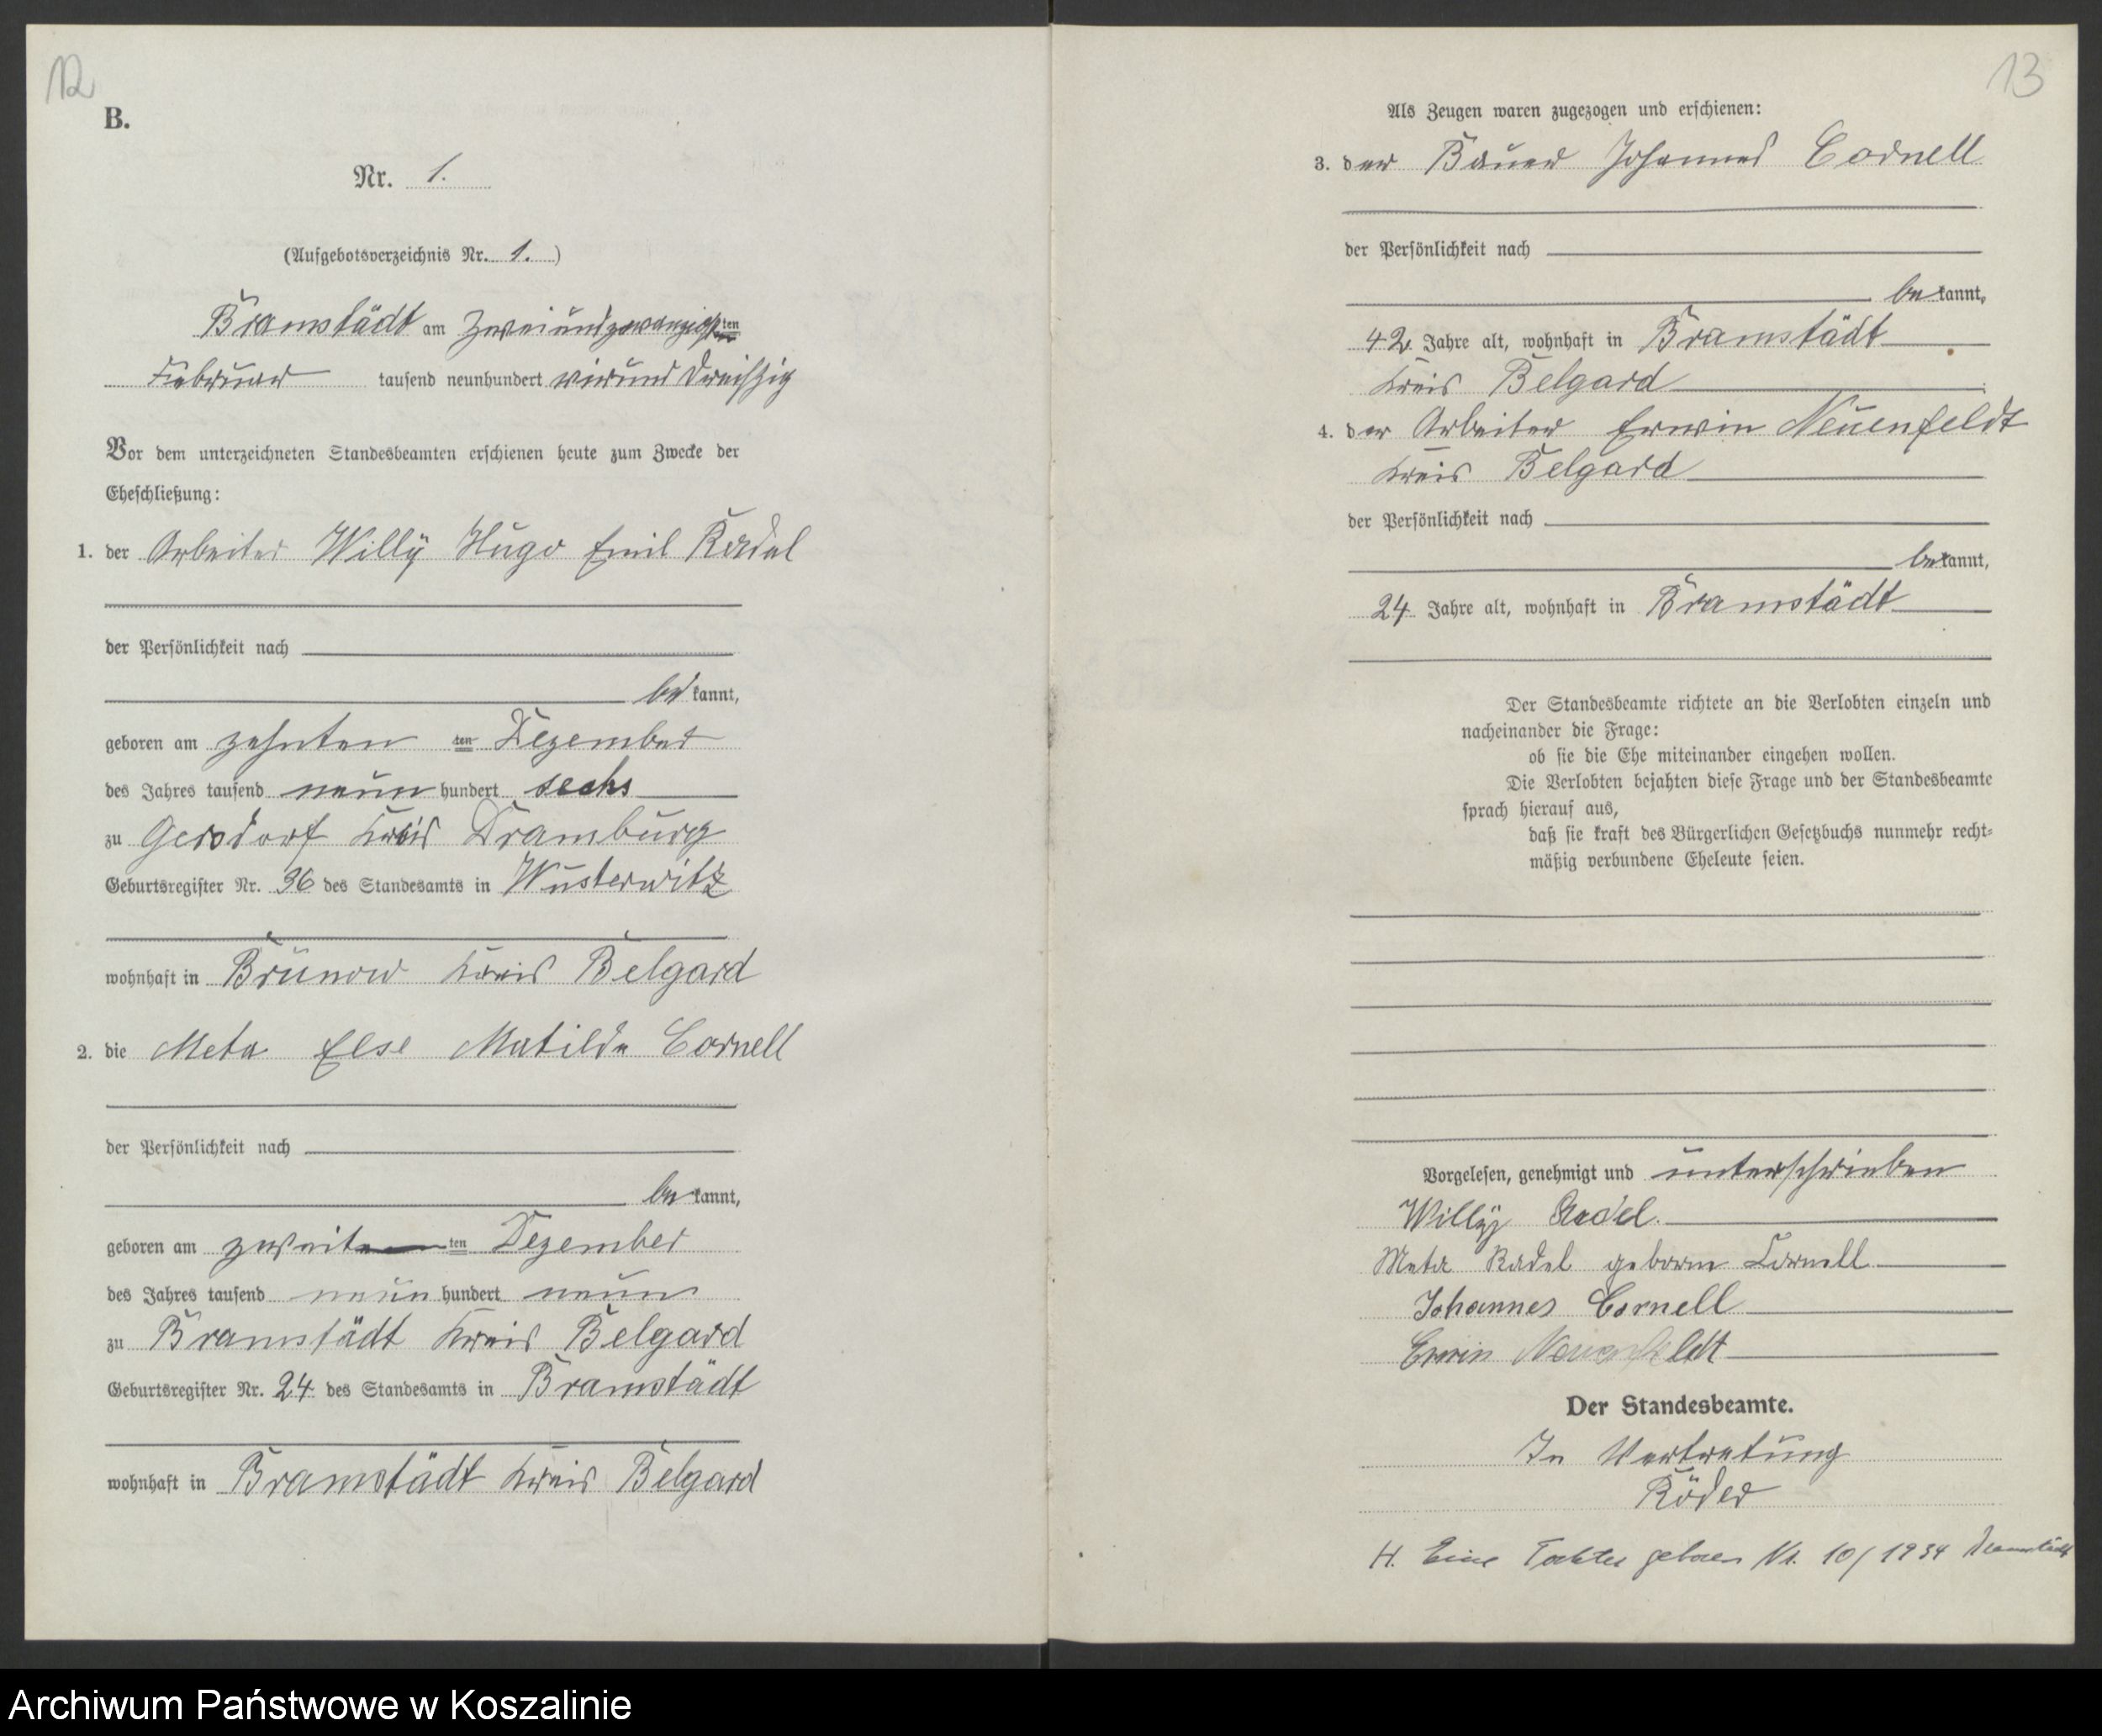 12
B.
Nr. 1.
(Aufgebotsverzeichnis Nr. 1.)
Bramstädt am Zweiundzwanzigsten ten
Februar tausend neunhundert vierund dreißig
Vor dem unterzeichneten Standesbeamten erschienen heute zum Zwecke der
Eheschließung:
1. der Arbeiter Willÿ Hugo Emil Radel
der Persönlichkeit nach
be kannt,
geboren am zehnten ten Dezember
des Jahres tausend neun hundert sechs
zu Gersdorf Kreis Dramburg
Geburtsregister Nr. 36 des Standesamts in Wusterwitz
wohnhaft in Brunow Kreis Belgard
2. die Meta Else Matilde Cornell
der Persönlichkeit nach
be kannt,
geboren am zweiten ten Dezember
des Jahres tausend neun hundert neun
zu Bramstädt Kreis Belgard
Geburtsregister Nr. 24 des Standesamts in Bramstädt
wohnhaft in Bramstädt Kreis Belgard
13
Als Zeugen waren zugezogen und erschienen:
3. der Bauer Johannes Cornell
der Persönlichkeit nach
be kannt,
42 Jahre alt, wohnhaft in Bramstädt
Kreis Belgard
4. der Arbeiter Erwin Neuenfeldt
Kreis Belgard
der Persönlichkeit nach
be kannt,
24 Jahre alt, wohnhaft in Bramstädt
Der Standesbeamte richtete an die Verlobten einzeln und
nacheinander die Frage:
ob sie die Ehe miteinander eingehen wollen.
Die Verlobten bejahten diese Frage und der Standesbeamte
sprach hierauf aus,
daß sie kraft des Bürgerlichen Gesetzbuchs nunmehr recht-
mäßig verbundene Eheleute seien.
Vorgelesen, genehmigt und unterschrieben
Willÿ Radel.
Meta Radel geborne Cornell
Johannes Cornell
Erwin Neuenfeldt
Der Standesbeamte.
In Vertretung
Röder
H. Eine Tochter geboren Nr. 10/1934 Bramstädt
Archiwum Państwowe w Koszalinie